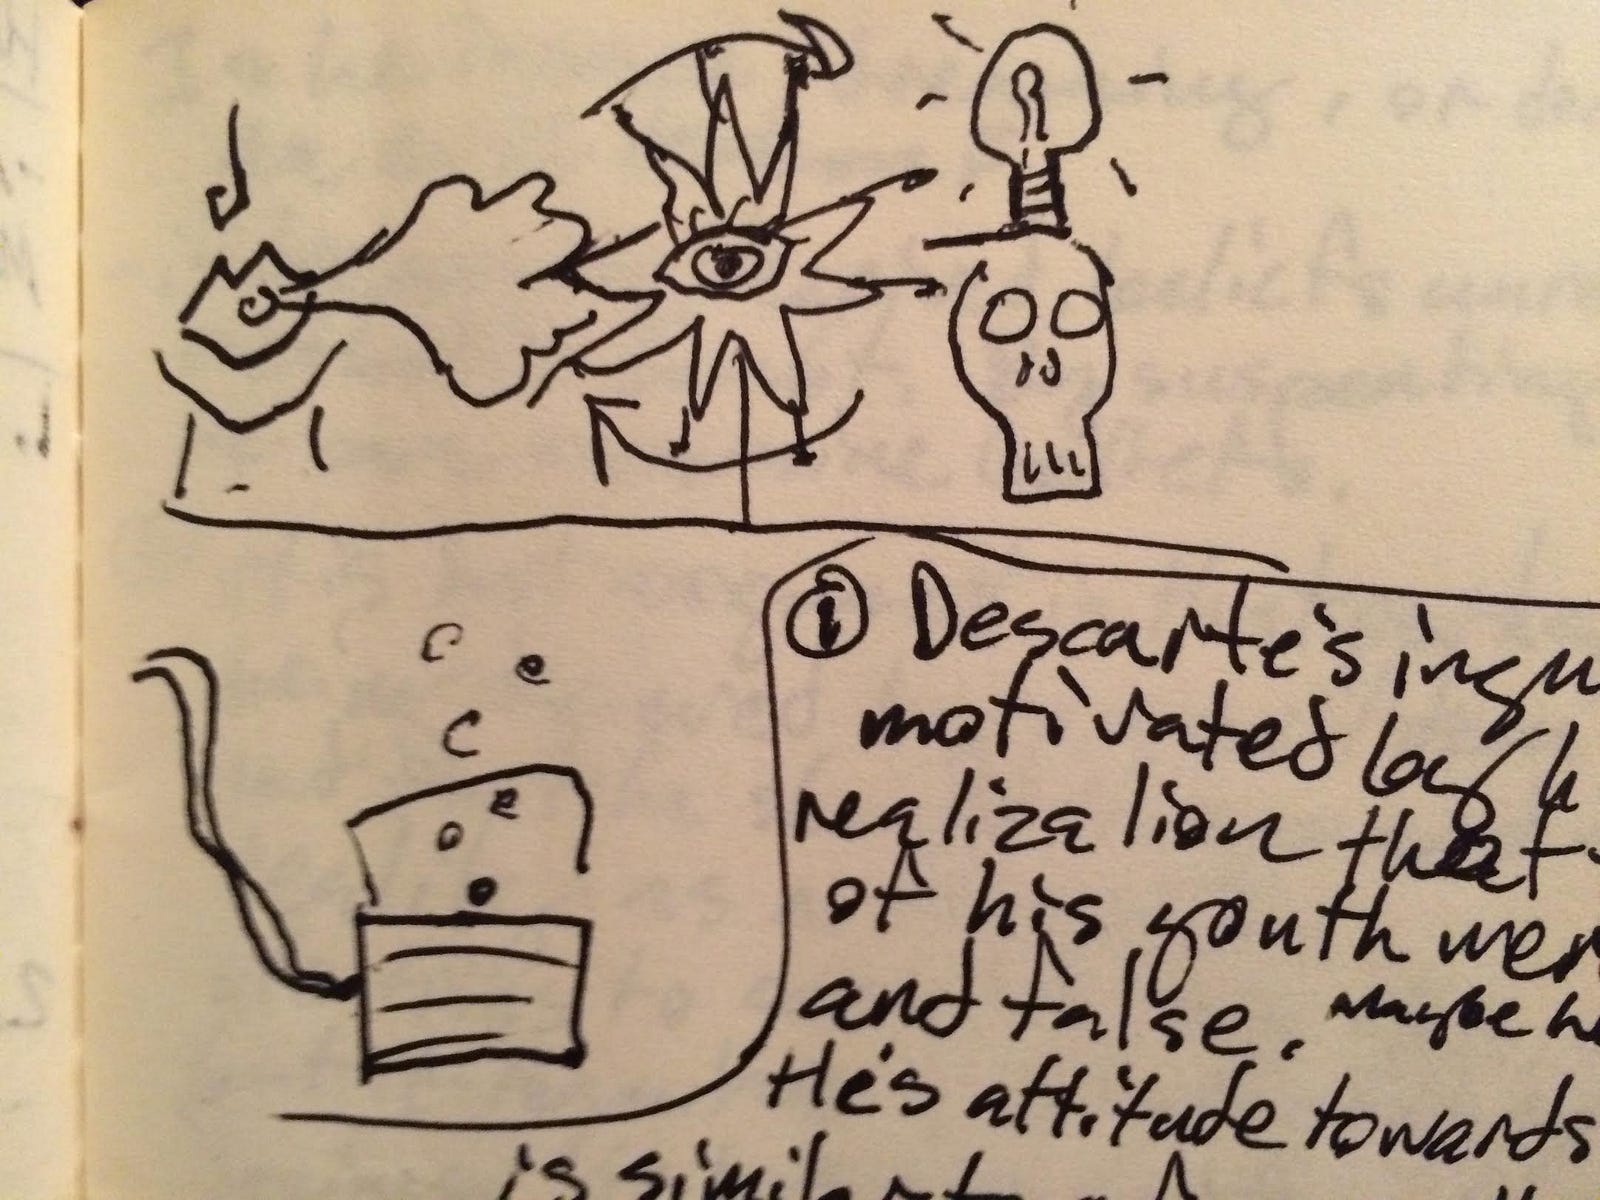 ① Descarte's inqu
motivated by h
realization that
of his youth wer
and false. Maybe h
He's attitude towards
is similar to